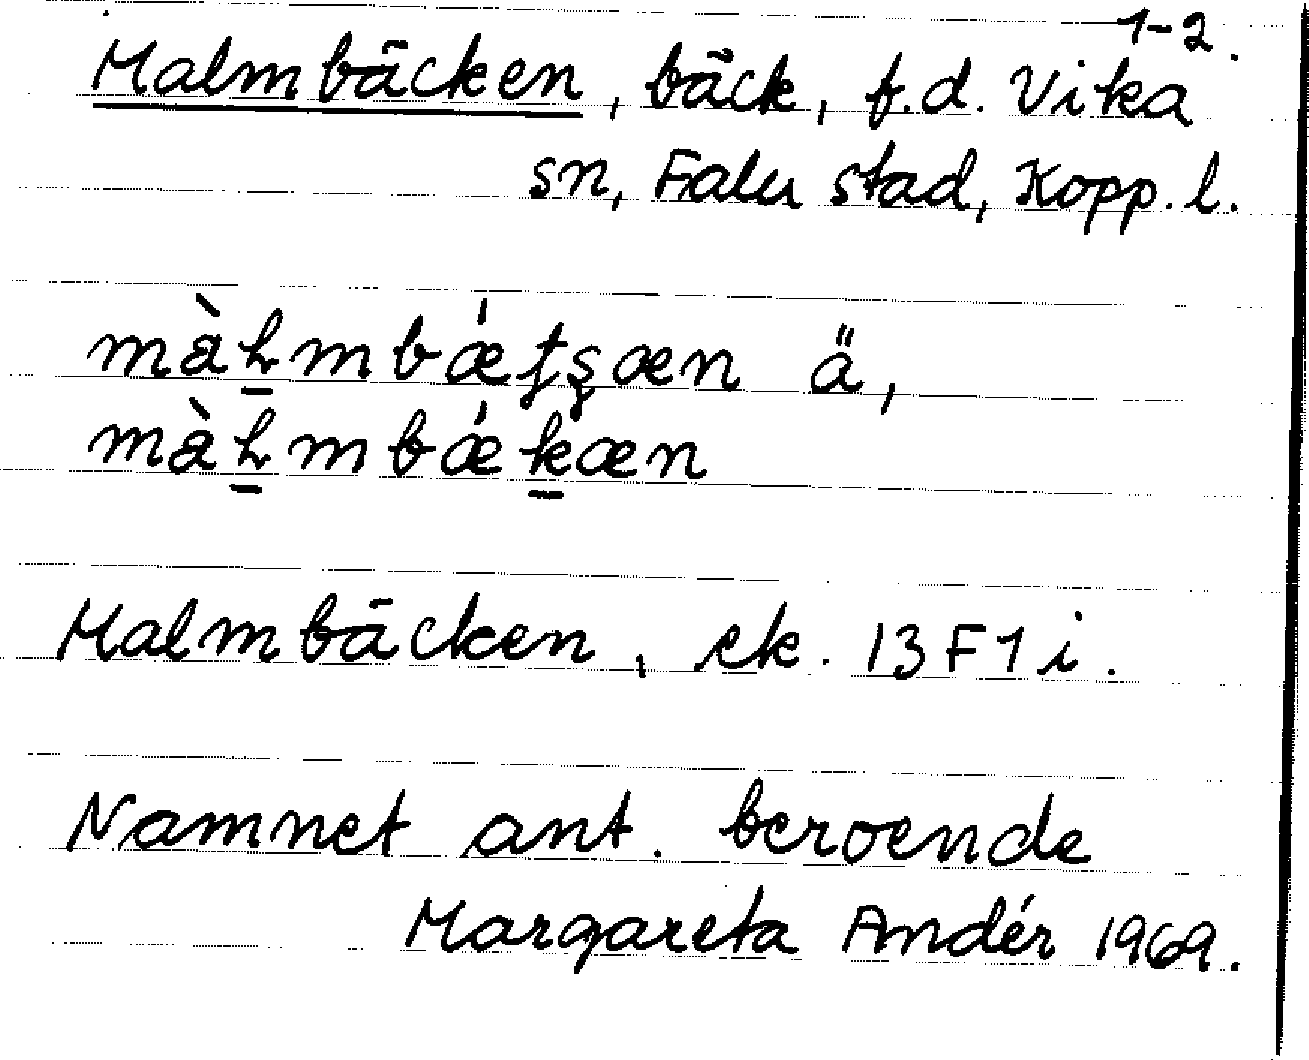 1-2.
Malmbäcken, bäck, f.d. Vika
sn, Falu stad, Kopp. l.
màḻmbǽʈʂæn ä,
màḻmbǽḵæn
Malmbäcken, ek. 13F1i.
Namnet ant. beroende
Margareta Andér 1969.